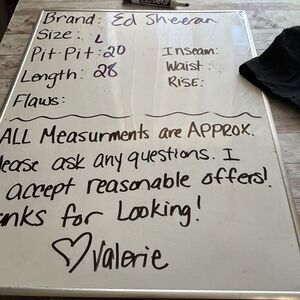 Brand: Ed Sheeran
Size: L
Pit-Pit: 20 Inseam:
Length: 28 Waist:
Flaws: Rise:
ALL Measurments are APPROX.
lease ask any questions. I
accept reasonable offers!
anks for Looking!
♡Valerie